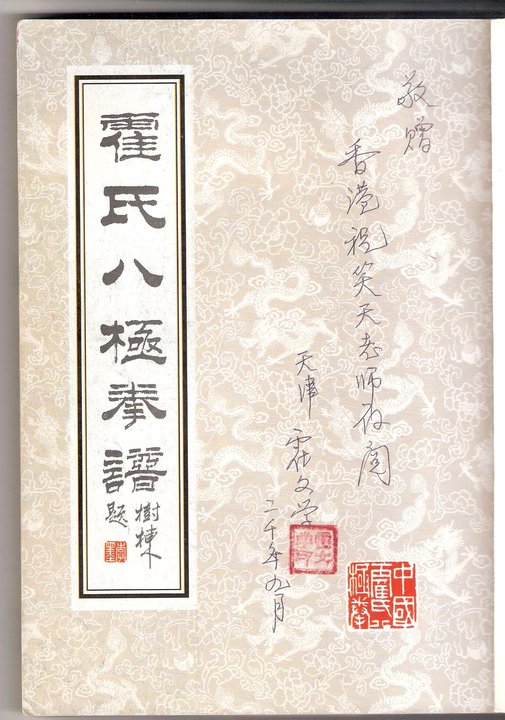 敬赠
香港祝笑天老师存阅
天津 霍文学
二千年九月
中國
霍氏八
極拳
霍氏八極拳譜
樹棟
題